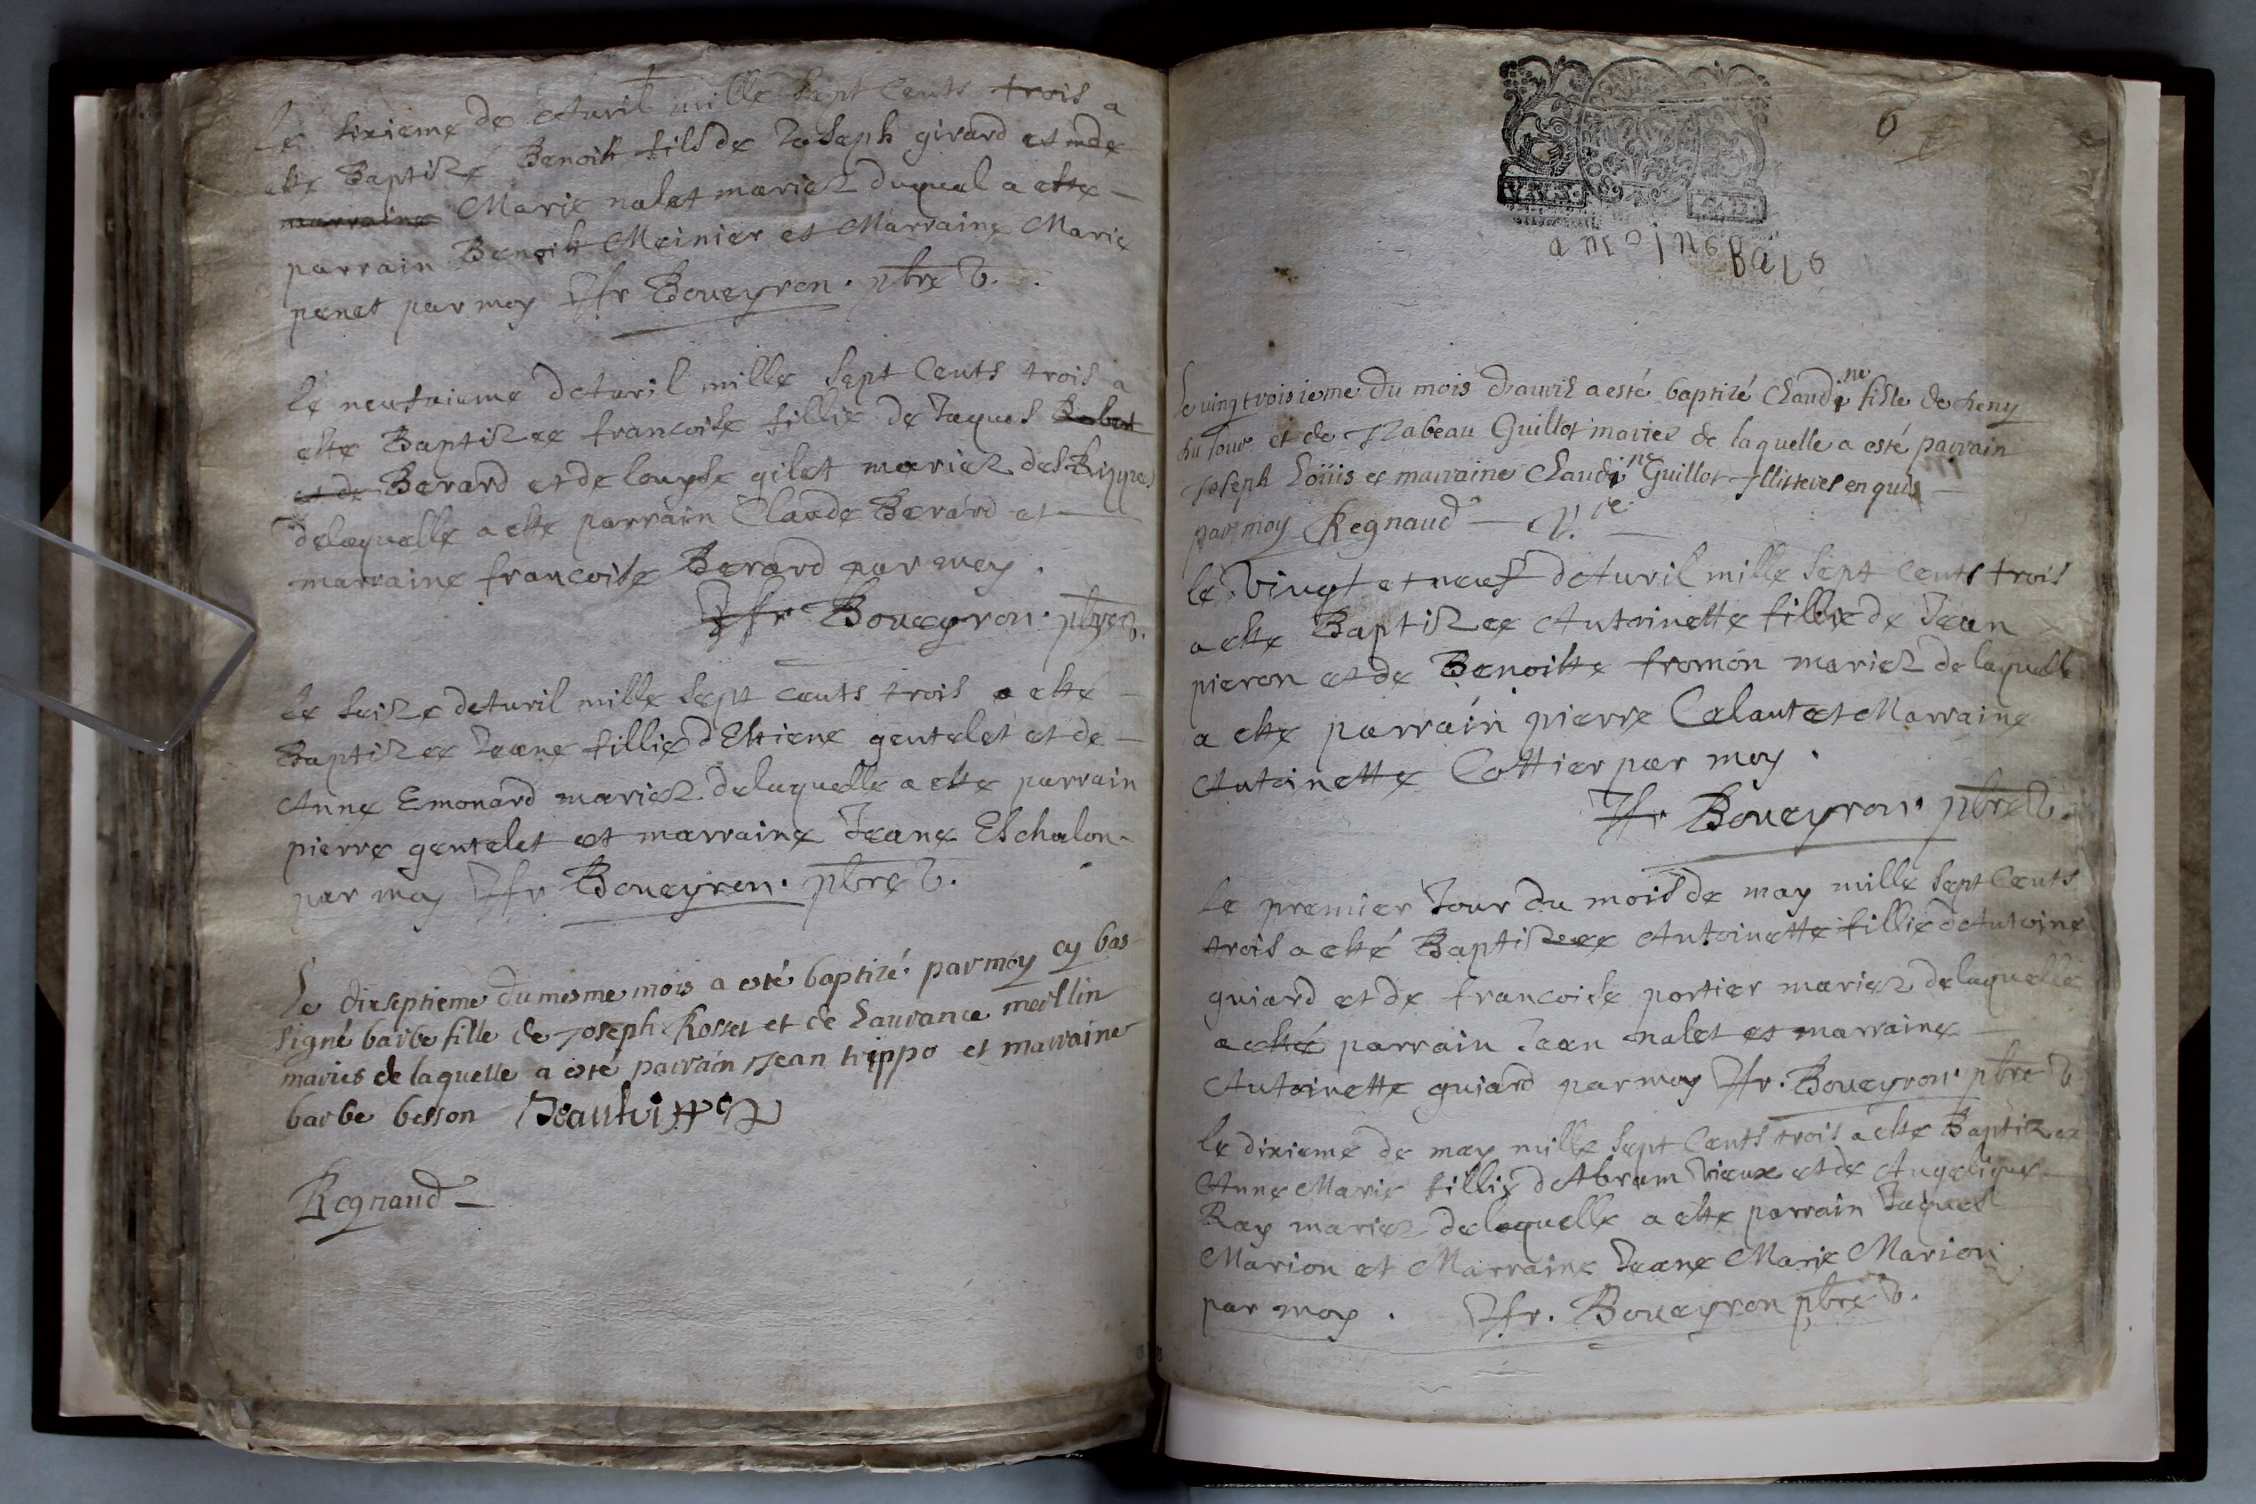 Le sixieme de Avril mille sept cents trois a
este Baptizé Benoist fils de Joseph girard et mde
marraine Marie nalet mariez duquel a este
parrain Benoist Meinier et Marraine Marie
penet par moy Boueyron. pbre v.
le neufvieme d'Avril mille sept cents trois a
este Baptizee francoise fillie de Jaques Robert
et de Berard et de louyse gilet mariez des Rippes
de laquelle a este parrain Claude Berard et
marraine francoise Berard par moy.
Boueyron. pbre v.
Le seize d'Avril mille sept cents trois a este
Baptizee Jeane fillie d'Estiene gentelet et de
Anne Emonard mariez de laquelle a este parrain
pierre gentelet et marraine Jeane Eschalon
par moy Boueyron. pbre v.
Le dixseptieme du mesme mois a esté baptizé par moy cy bas
signé barbe fille de Joseph Rosset et de Laurance meillin
mariés de laquelle a esté parrain Jean trippo et marraine
barbe besson
Regnaud
6
VNS.
Le vingtroisieme du mois d'avril a esté baptizé Claudine fille de
du four et de Izabeau Guillot mariez de laquelle a esté parrain
Joseph Loüis et marraine Claudine Guillot Illiteres enquis
par moy Regnaud V.re
le Vingt et neuf d'Avril mille sept cents trois
a este Baptizee Antoinette fillie de Jean
pieron et de Benoitte fromon mariez de laquelle
a este parrain pierre Calaut et Marraine
Antoinette Cottier par moy.
Boueyron. pbre v.
Le premier Jour du mois de may mille sept cents
trois a esté Baptizee Antoinette fillie d'Antoine
guiard et de francoise portier mariez de laquelle
a esté parrain Jean nalet et marraine
Antoinette guiard par moy Boueyron. pbre v
le dixieme de may mille sept cents trois a este Baptizee
Anne Marie fillie d'Abram Vieux et de Angelique
Ray mariez de laquelle a este parrain Jaques
Marion et Marraine Jeane Marie Marion
par moy. Boueyron pbre v.